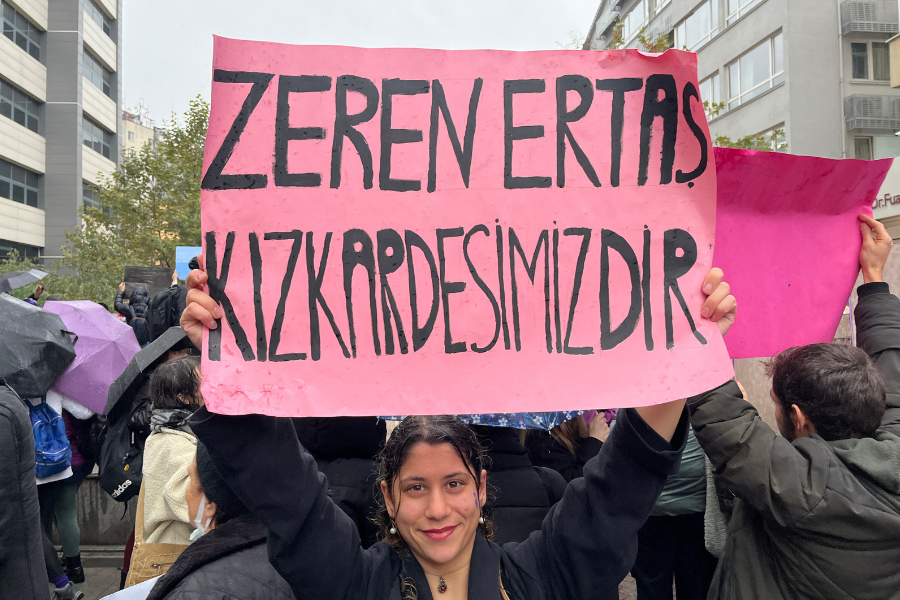 ZEREN ERTAŞ
KIZKARDEŞİMİZDİR
Dr.Fua
adidas